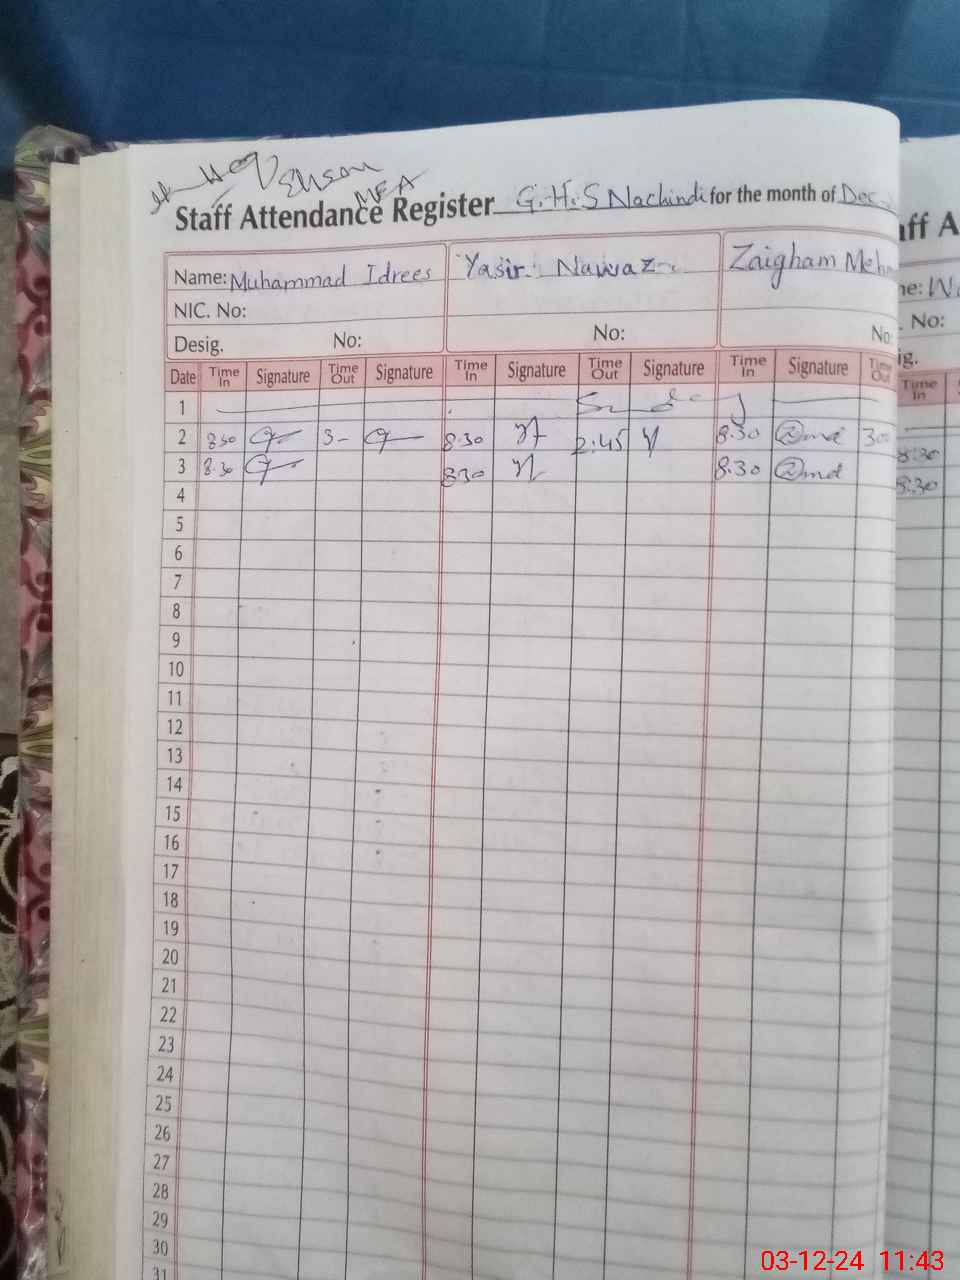 Ehsan
MEA
Staff Attendance Register G.H.S Nachindi for the month of Dec
Name: Muhammad Idrees Yasir Nawaz Zaigham Meh
NIC. No:
Desig. No: No: No:
Date Time In Signature Time Out Signature Time In Signature Time Out Signature Time In Signature Time Out
1 Sunday
2 8.30 3- 8.30 2:45 8.30 300
3 8.30 8.30 8.30
4
5
6
7
8
9
10
11
12
13
14
15
16
17
18
19
20
21
22
23
24
25
26
27
28
29
30
31
aff A
me: W
. No:
ig.
Time In
8:30
8:30
03-12-24 11:43